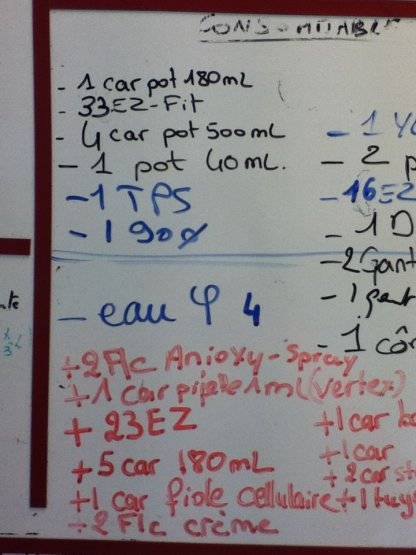 CONSOMMABLE
- 1 car pot 180mL
- 33EZ-Fit
- 4 car pot 500mL
- 1 pot 40mL.
- 1 TPS
- 1 90°
- eau φ 4
- 1
- 2 p
- 16EZ
- 1 D
- 2 Gant
- 1
- 1 côn
+2 Flc Anioxy-Spray
+1 car pipette 1ml (vertex)
+ 23EZ
+5 car 180mL
+1 car fiole cellulaire
+2 Flc crème
+1 car
+1 car
+2 car st
+1 tuy